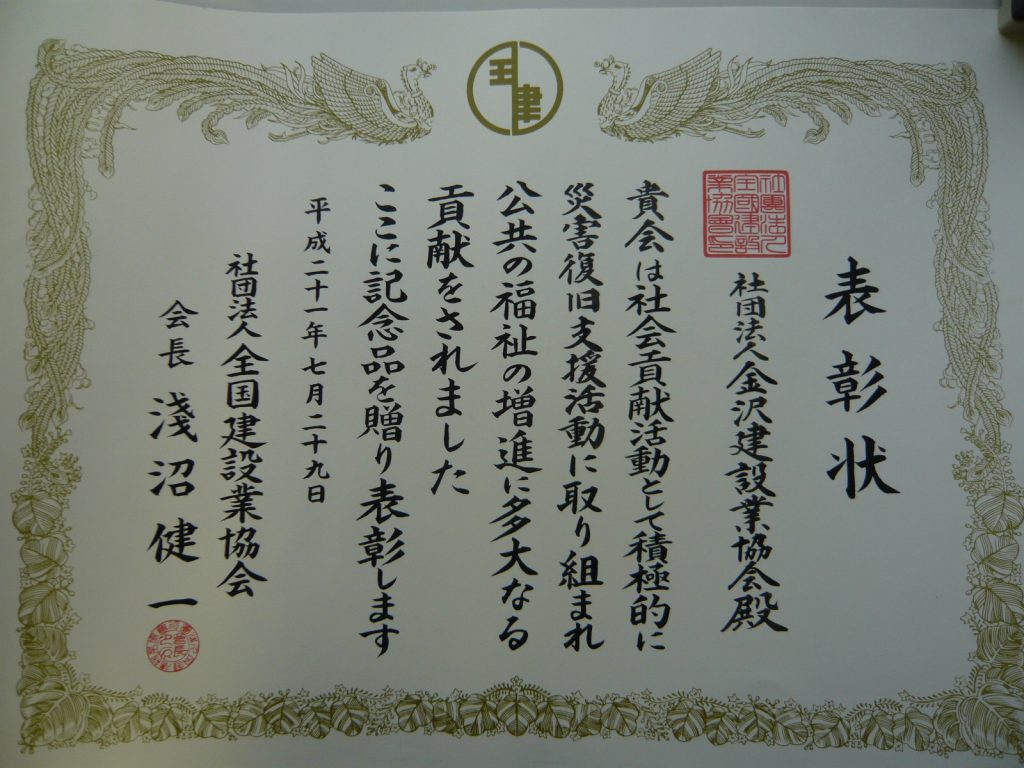 表彰状
社団法人金沢建設業協会殿
貴会は社会貢献活動として積極的に
災害復旧支援活動に取り組まれ
公共の福祉の増進に多大なる
貢献をされました
ここに記念品を贈り表彰します
平成二十一年七月二十九日
社団法人全国建設業協会
会長 淺沼健一
社団法人全国建設業協会印